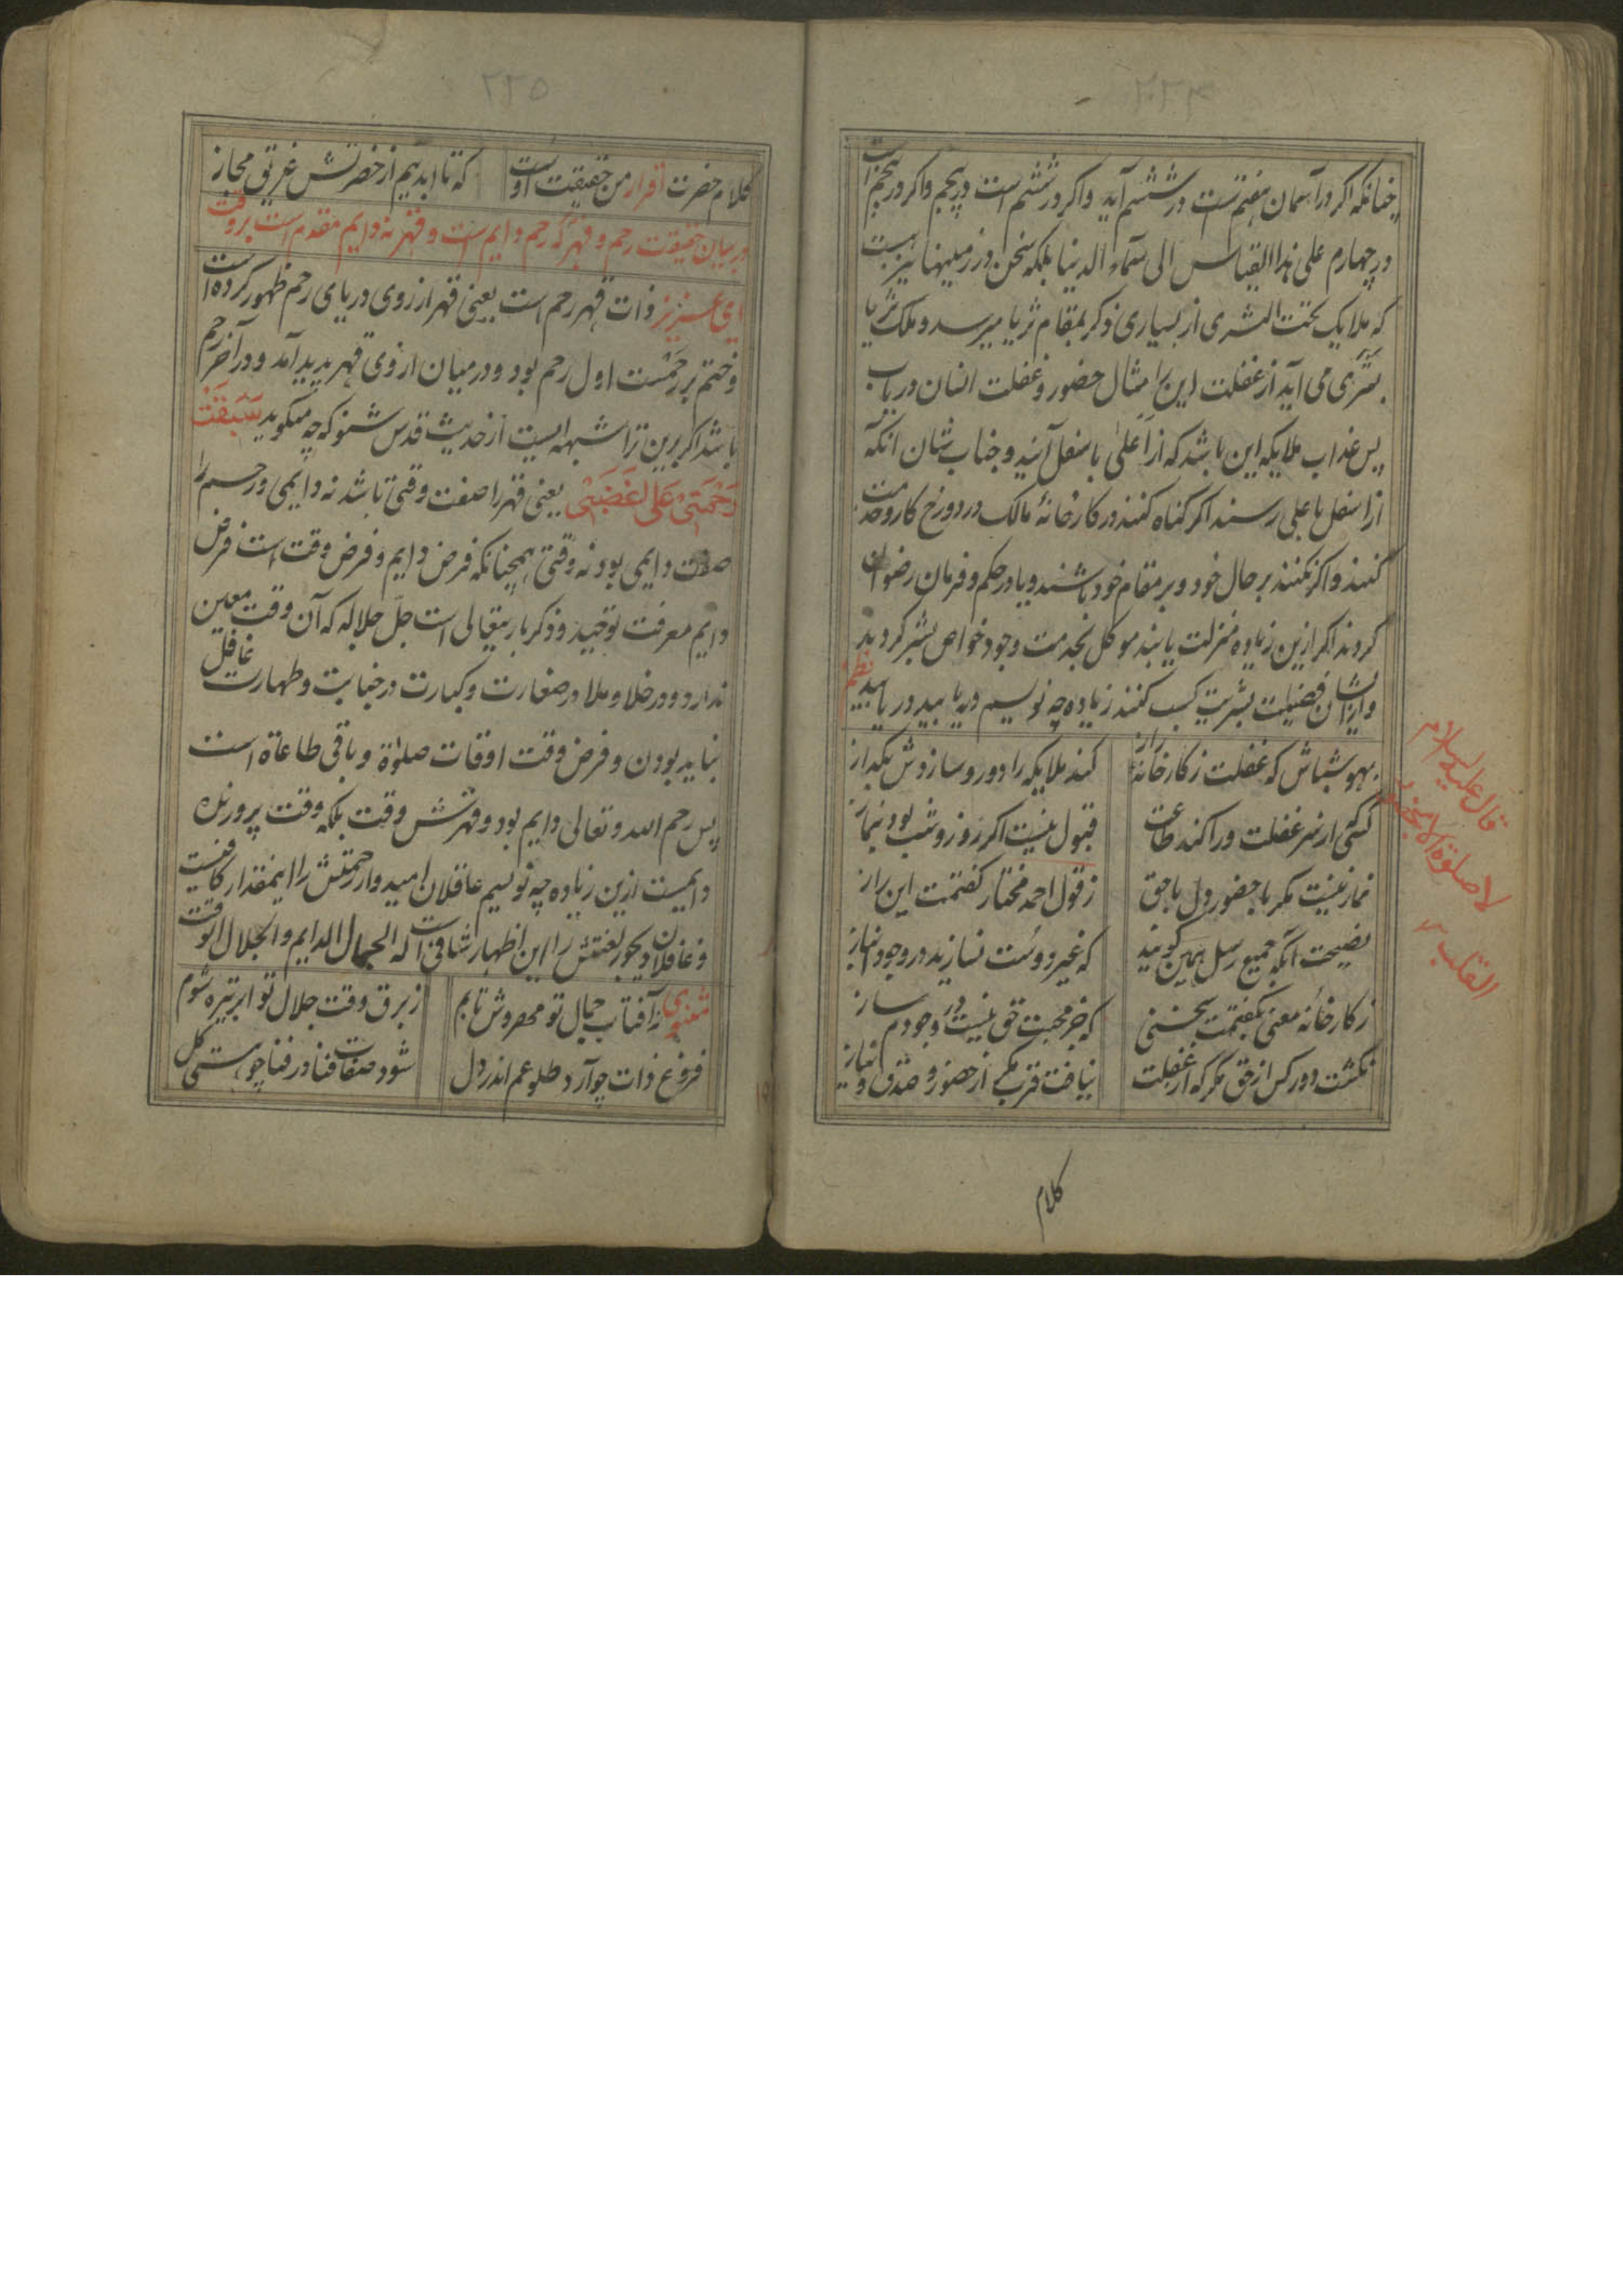 ۲۲۴
چنانکه اکر در آسمان هفتم است در ششم آید واکر در ششم است در پنجم واکر در پنجم است
در چهارم علی هذا القیاس الی سماء الدنیا بلکه سخن در زمینها نیز هست
که ملایک تحت الثری از بسیاری ذکر بمقام ثریا میرسد و ملک ثریا
بثری می آید از غفلت این را مثال حضور و غفلت انسان دریاب
پس عذاب ملایکه این باشد که از اعلی باسفل آیند و جناب شان آنکه
از اسفل باعلی رسند اکر کناه کنند در کارخانهٔ مالک در دوزخ کار و خدمت
کنند واکر نکنند بر حال خود و بر مقام خود باشند و یا در حکم و فرمان رضوان
کردند اکر ازین زیاده منزلت یابند موکل بخدمت وجود خواص بشر کردید
وازیشان فضیلت بشریت کسب کنند زیاده چه نویسیم دریابید دریابید
نظم
بهوش باش که غفلت ز کارخانهٔ راز کند ملایکه را دور و سازدش بکداز
کسی از سر غفلت ورا کند طاعت قبول نیست اکر روز و شب بود بنماز
نماز نیست مکر با حضور دل با حق ز قول احمد مختار کفتمت این راز
نصیحت آنکه جمیع رسل همین کویند که غیر دوست نسازید در وجود انباز
ز کارخانه معنی بکفتمت سخنی که جز محبت حق نیست در وجودم ساز
نکشت دور کس از حق مکر که از غفلت نیافت قرب مکر از حضور و صدق و نیاز
قال علیه السلام
لا صلوة الا بحضور
القلب
کلام
۲۲۵
کلام حضرت اقرار من حقیقت اوست که تا ابدیم از حضرتش غریق مجاز
در بیان حقیقت رحم و قهر که رحم دایم است و قهر نه دایم مقدم است بر وقت
ای عزیز ذات قهر رحم است یعنی قهر از روی دریای رحم ظهور کرده است
و ختم بر رحمست اول رحم بود و در میان از وی قهر پدید آمد و در آخر رحم
باشد اکر برین ترا شبهه ایست از حدیث قدس شنو که چه میکوید سَبَقَتْ
رَحْمَتِیْ عَلی غَضَبِیْ یعنی قهر را صفت وقتی باشد نه دایمی و رحم را
صفت دایمی بود نه وقتی همچنانکه فرض دایم و فرض وقت است فرض
دایم معرفت توحید و ذکر باریتعالی است جلّ جلاله که آن وقت معین
ندارد و در خلا و ملا در صغارت و کبارت در جنابت و طهارت غافل
نباید بودن و فرض وقت اوقات صلوٰة و باقی طاعاة است
پس رحم الله و تعالی دایم بود و قهرش وقت بلکه وقت پرورنده
دایمست ازین زیاده چه نویسیم عاقلان امیدوار رحمتش را اینمقدار کافیست
و غافلان دیجور لعنتش را این اظهار شافی است که الجمال الدایم والجلال الوقت
مثنوی ز آفتاب جمال تو مهروش تابم ز برق وقت جلال تو ابر تیره شوم
فروغ ذات چو آرد طلوعم اندر دل شود صفات فنا در فنا چو هستی کل